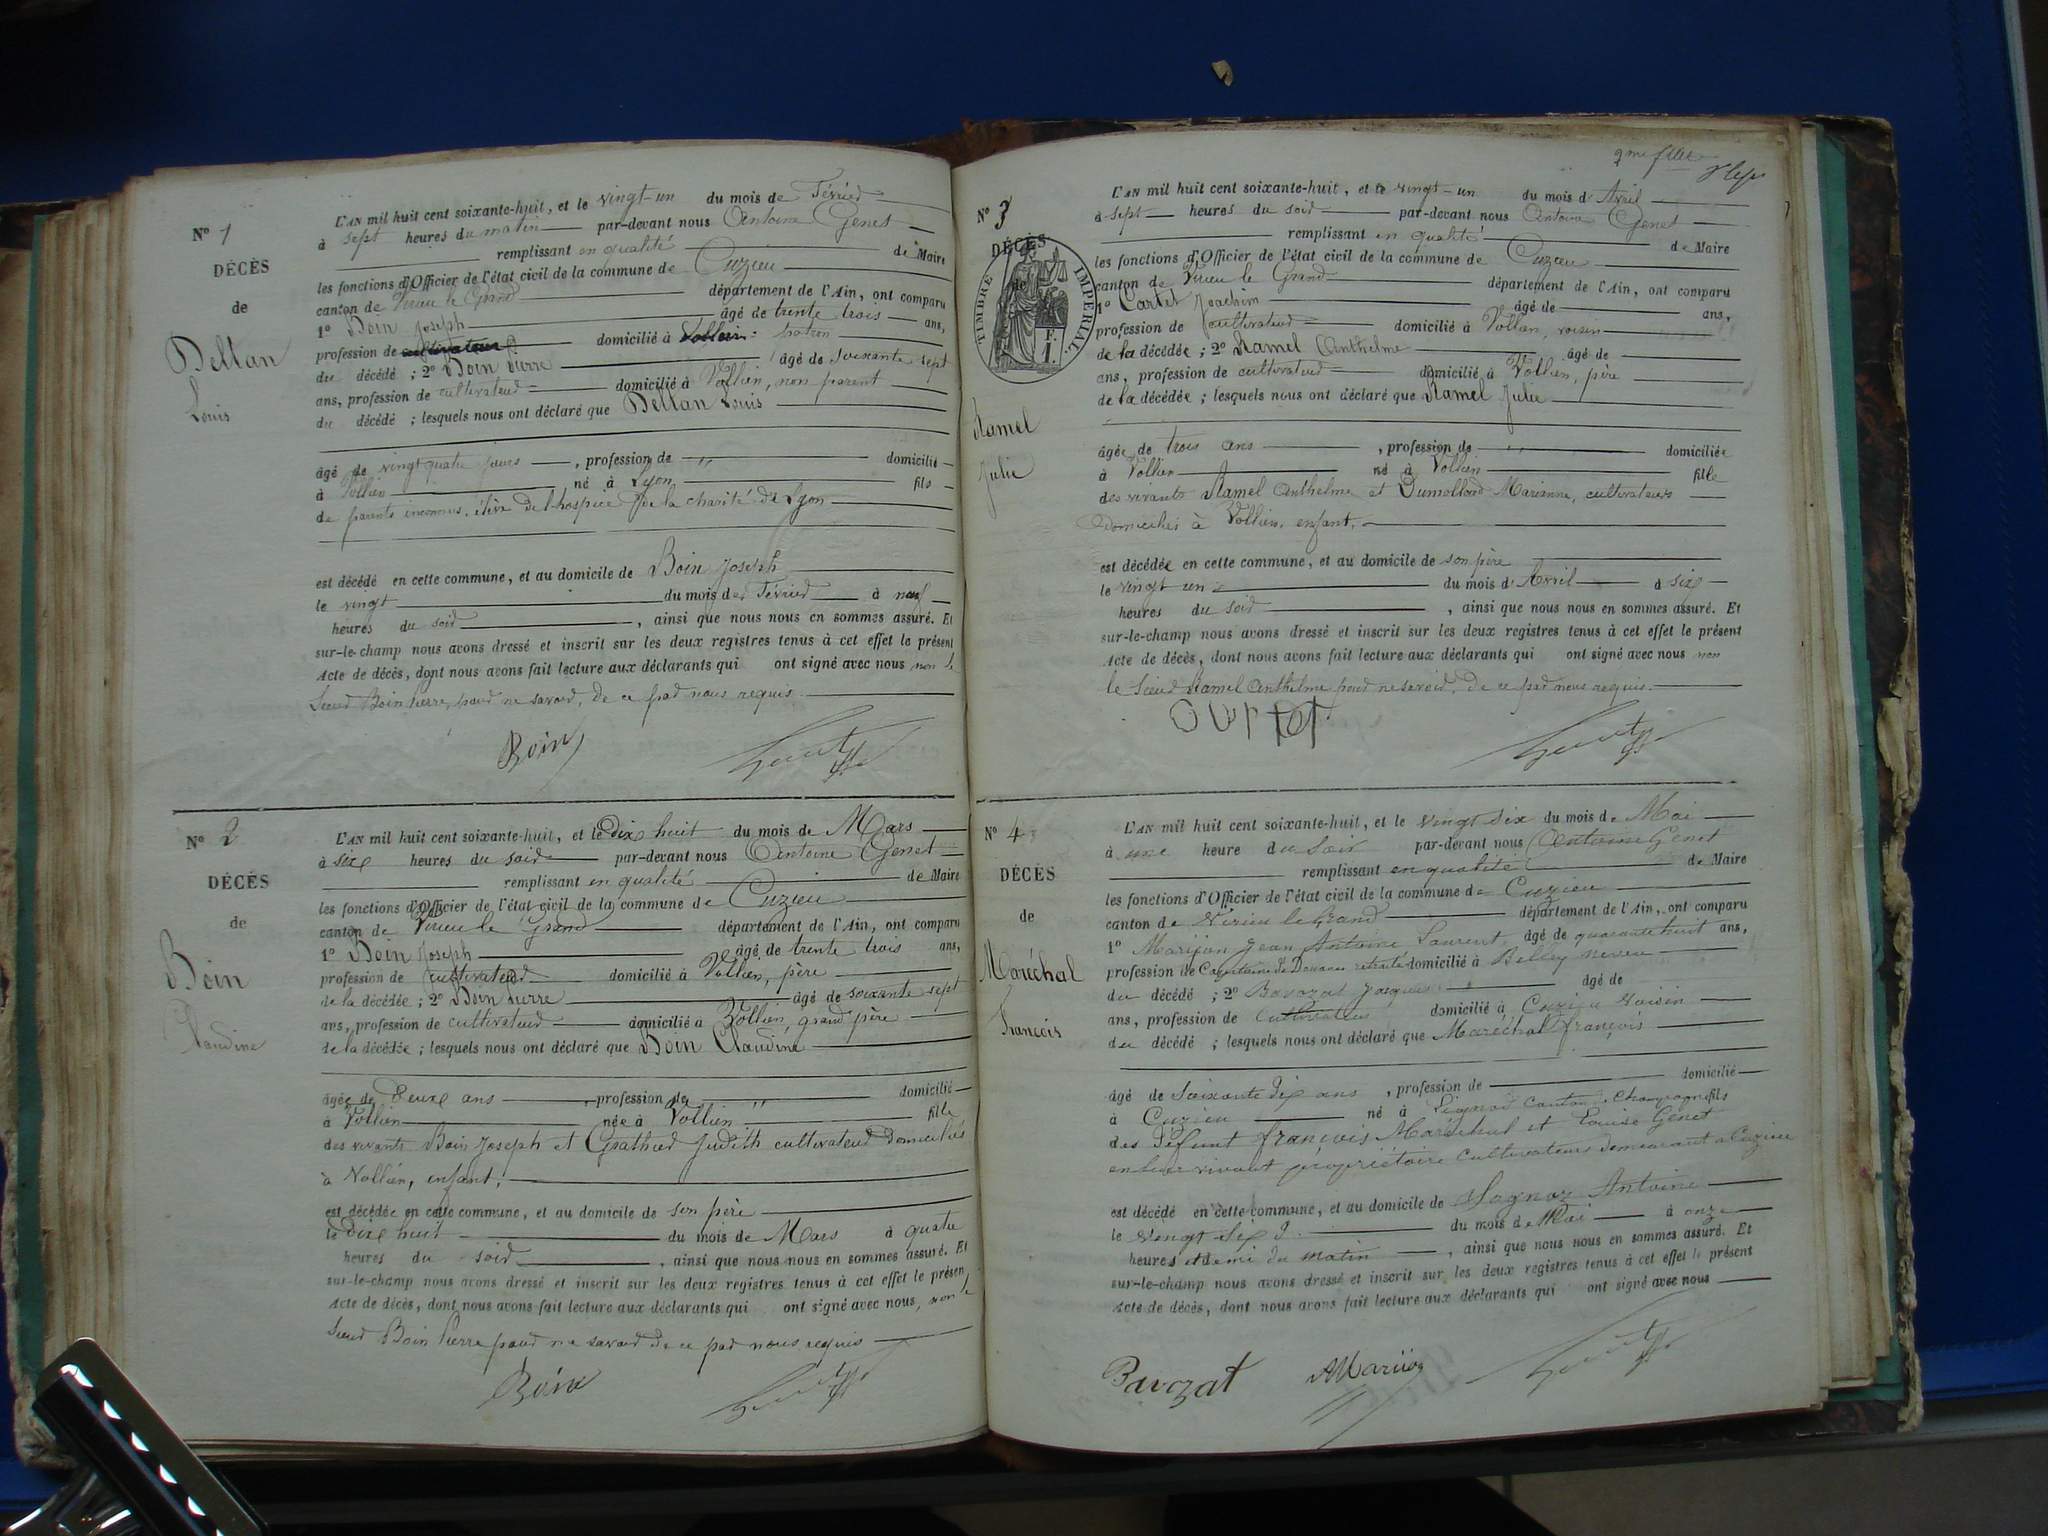 N° 1
DÉCÈS
de
Dellan
Louis
L'AN mil huit cent soixante-huit, et le vingt-un du mois de Février
à sept heures du matin par-devant nous Antoine Genet
remplissant en qualité de Maire
les fonctions d'Officier de l'état civil de la commune de Cuzieu
canton de Virieu le Grand département de l'Ain, ont comparu
1° Boin Joseph âgé de trente trois ans,
profession de cultivateur domicilié à Vollien patron
du décédé ; 2° Boin Pierre âgé de soixante sept
ans, profession de cultivateur domicilié à Vollien, non parent
du décédé ; lesquels nous ont déclaré que Dellan Louis
âgé de vingt quatre jours , profession de " domicilié
à Vollien né à Lyon fils
de parents inconnus, élève de l'hospice de la charité de Lyon
est décédé en cette commune, et au domicile de Boin Joseph
le vingt du mois de Février à neuf
heures du soir , ainsi que nous nous en sommes assuré. Et
sur-le-champ nous avons dressé et inscrit sur les deux registres tenus à cet effet le présent
Acte de décès, dont nous avons fait lecture aux déclarants qui ont signé avec nous non le
Sieur Boin Pierre, pour ne savoir, de ce par nous requis.
Boin
N° 2
DÉCÈS
de
Boin
Claudine
L'AN mil huit cent soixante-huit, et le dix huit du mois de Mars
à six heures du soir par-devant nous Antoine Genet
remplissant en qualité de Maire
les fonctions d'Officier de l'état civil de la commune de Cuzieu
canton de Virieu le Grand département de l'Ain, ont comparu
1° Boin Joseph âgé de trente trois ans,
profession de cultivateur domicilié à Vollien, père
de la décédée ; 2° Boin Pierre âgé de soixante sept
ans, profession de cultivateur domicilié à Vollien, grand père
de la décédée ; lesquels nous ont déclaré que Boin Claudine
âgée de deux ans , profession de " domicilié
à Vollien née à Vollien fille
des vivants Boin Joseph et Judith cultivateurs domiciliés
à Vollien, enfant.
est décédée en cette commune, et au domicile de son père
le dix huit du mois de Mars à quatre
heures du soir , ainsi que nous nous en sommes assuré. Et
sur-le-champ nous avons dressé et inscrit sur les deux registres tenus à cet effet le présent
Acte de décès, dont nous avons fait lecture aux déclarants qui ont signé avec nous, non le
Sieur Boin Pierre pour ne savoir de ce par nous requis
Boin
N° 3
DÉCÈS
de
TIMBRE IMPÉRIAL
Ramel
Julie
L'AN mil huit cent soixante-huit, et le vingt-un du mois d'Avril
à sept heures du soir par-devant nous Antoine Genet
remplissant en qualité de Maire
les fonctions d'Officier de l'état civil de la commune de Cuzieu
canton de Virieu le Grand département de l'Ain, ont comparu
1° Cartet Joachim âgé de ans,
profession de cultivateur domicilié à Vollien, voisin
de la décédée ; 2° Ramel Anthelme âgé de
ans, profession de cultivateur domicilié à Vollien, père
de la décédée ; lesquels nous ont déclaré que Ramel Julie
âgée de trois ans , profession de " domiciliée
à Vollien né à Vollien fille
des vivants Ramel Anthelme et Dumollard Marianne, cultivateurs
domiciliés à Vollien, enfant.
est décédée en cette commune, et au domicile de son père
le vingt un du mois d'Avril à six
heures du soir , ainsi que nous nous en sommes assuré. Et
sur-le-champ nous avons dressé et inscrit sur les deux registres tenus à cet effet le présent
Acte de décès, dont nous avons fait lecture aux déclarants qui ont signé avec nous non
le Sieur Ramel Anthelme pour ne savoir, de ce par nous requis.
N° 4
DÉCÈS
de
Maréchal
François
L'AN mil huit cent soixante-huit, et le vingt six du mois de Mai
à une heure du soir par-devant nous Antoine Genet
remplissant en qualité de Maire
les fonctions d'Officier de l'état civil de la commune de Cuzieu
canton de Virieu le Grand département de l'Ain, ont comparu
1° Marijon Jean Antoine Laurent, âgé de quarante huit ans,
profession de Capitaine de Douanes retraité domicilié à Belley neveu
du décédé ; 2° Bavozat Jacques âgé de
ans, profession de cultivateur domicilié à Cuzieu voisin
du décédé ; lesquels nous ont déclaré que Maréchal françois
âgé de Soixante dix ans , profession de domicilié
à Cuzieu né à canton Champagne fils
des défunt françois Maréchal et Louise Genet
en leur vivant propriétaire cultivateurs demeurant a Cuzieu
est décédé en cette commune, et au domicile de Antoine
le vingt Six du mois de Mai à onze
heures et demi du matin , ainsi que nous nous en sommes assuré. Et
sur-le-champ nous avons dressé et inscrit sur les deux registres tenus à cet effet le présent
Acte de décès, dont nous avons fait lecture aux déclarants qui ont signé avec nous
Bavozat